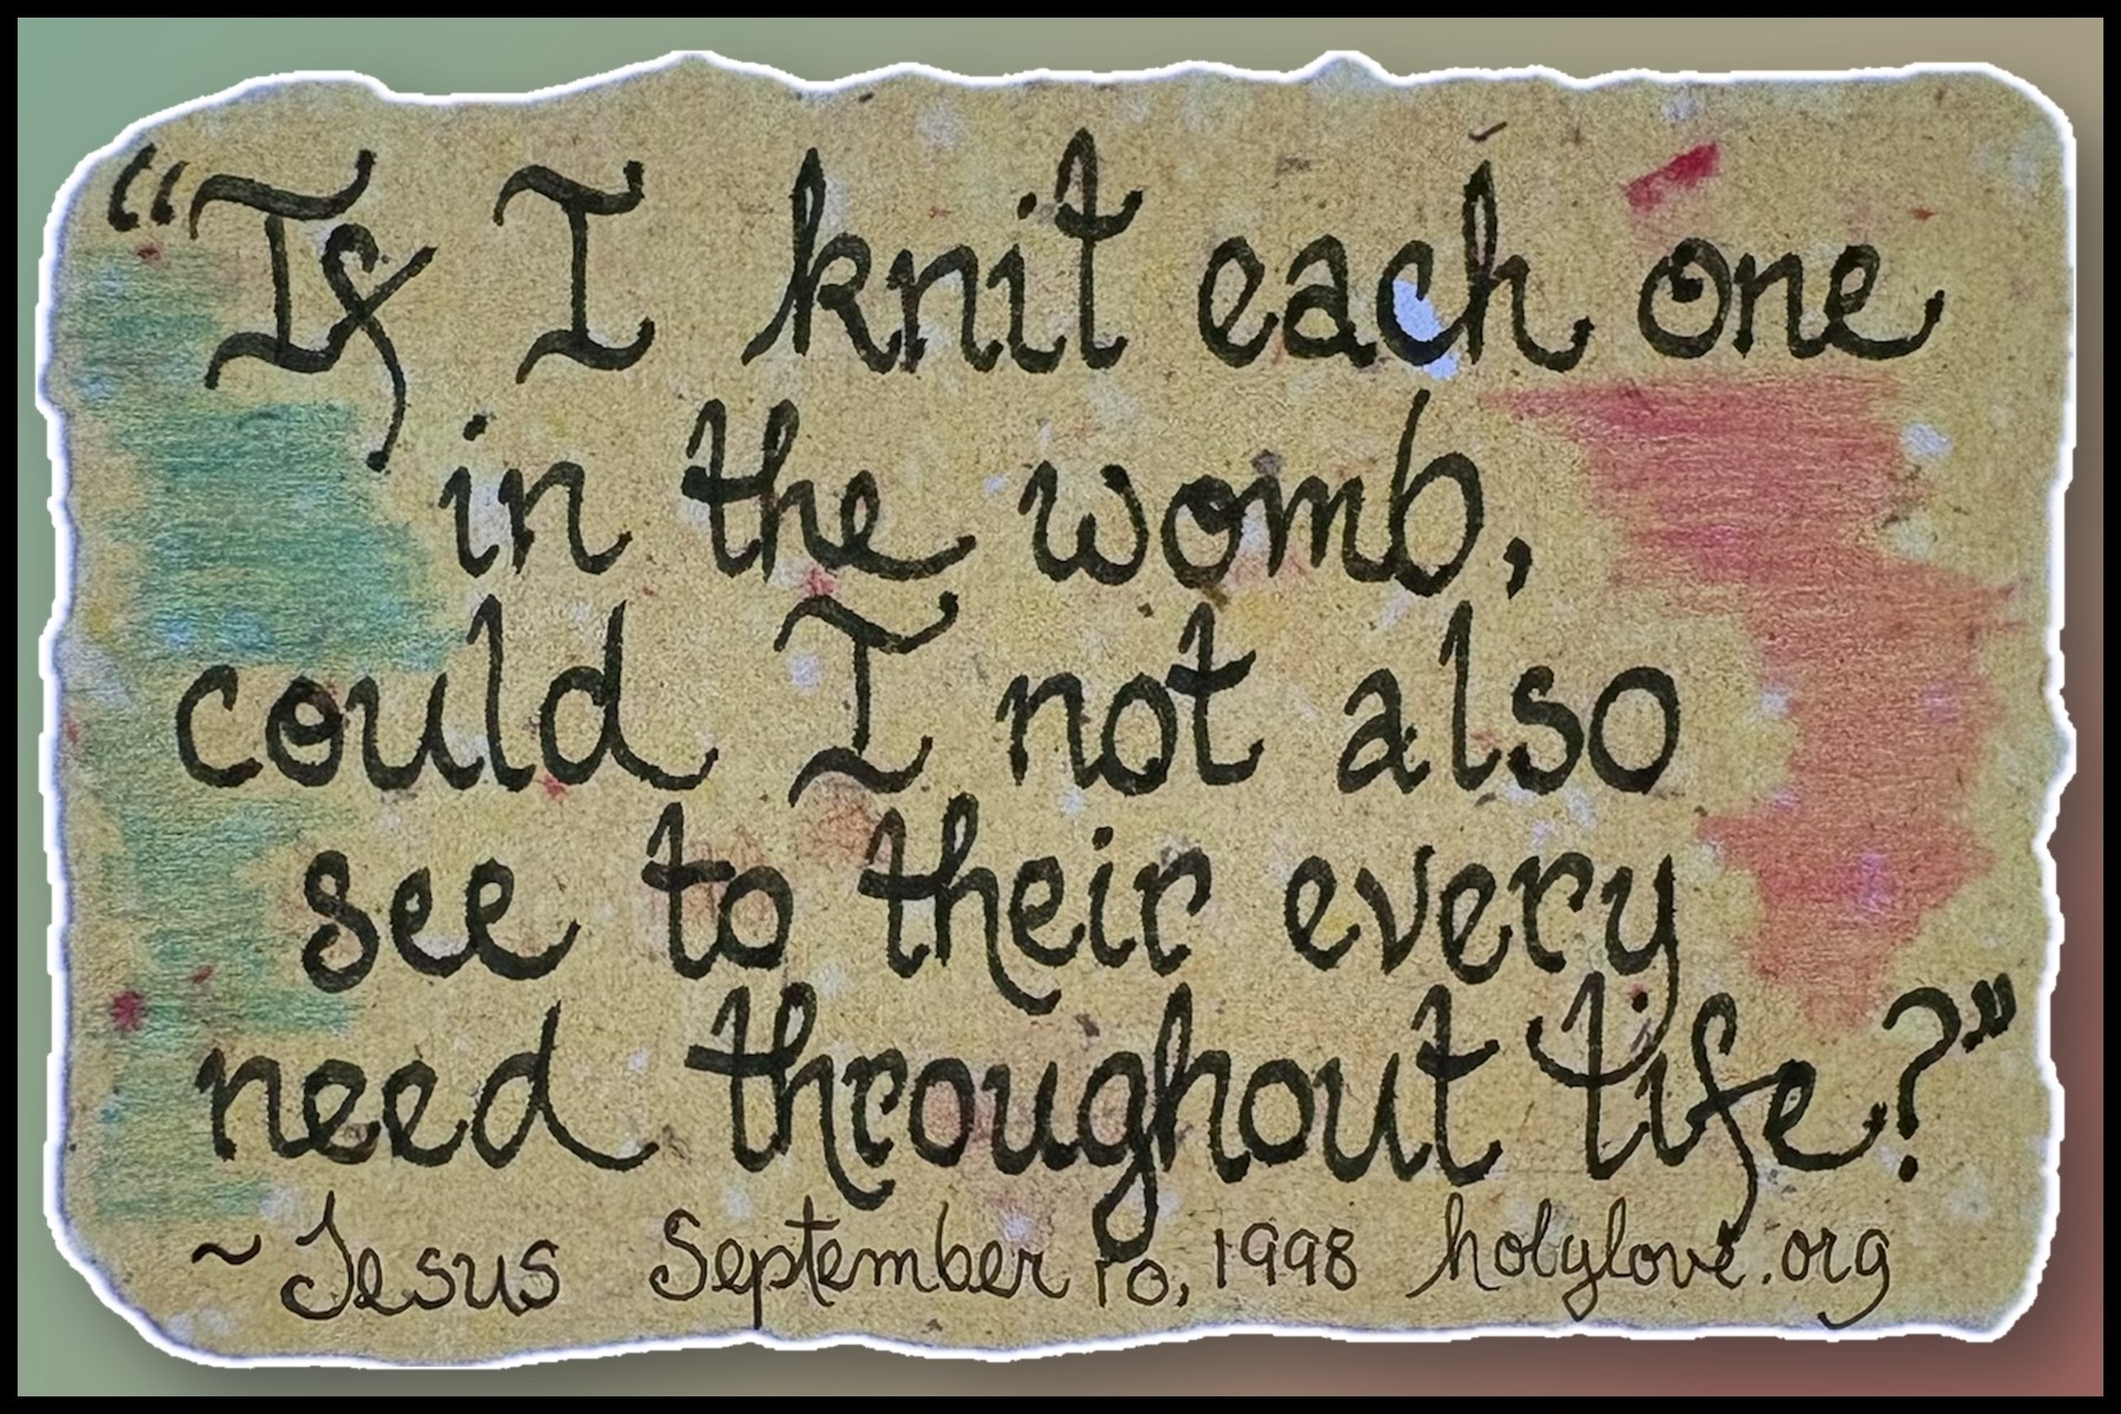 “If I knit each one
in the womb,
could I not also
see to their every
need throughout life?”
~ Jesus September 10, 1998 holylove.org